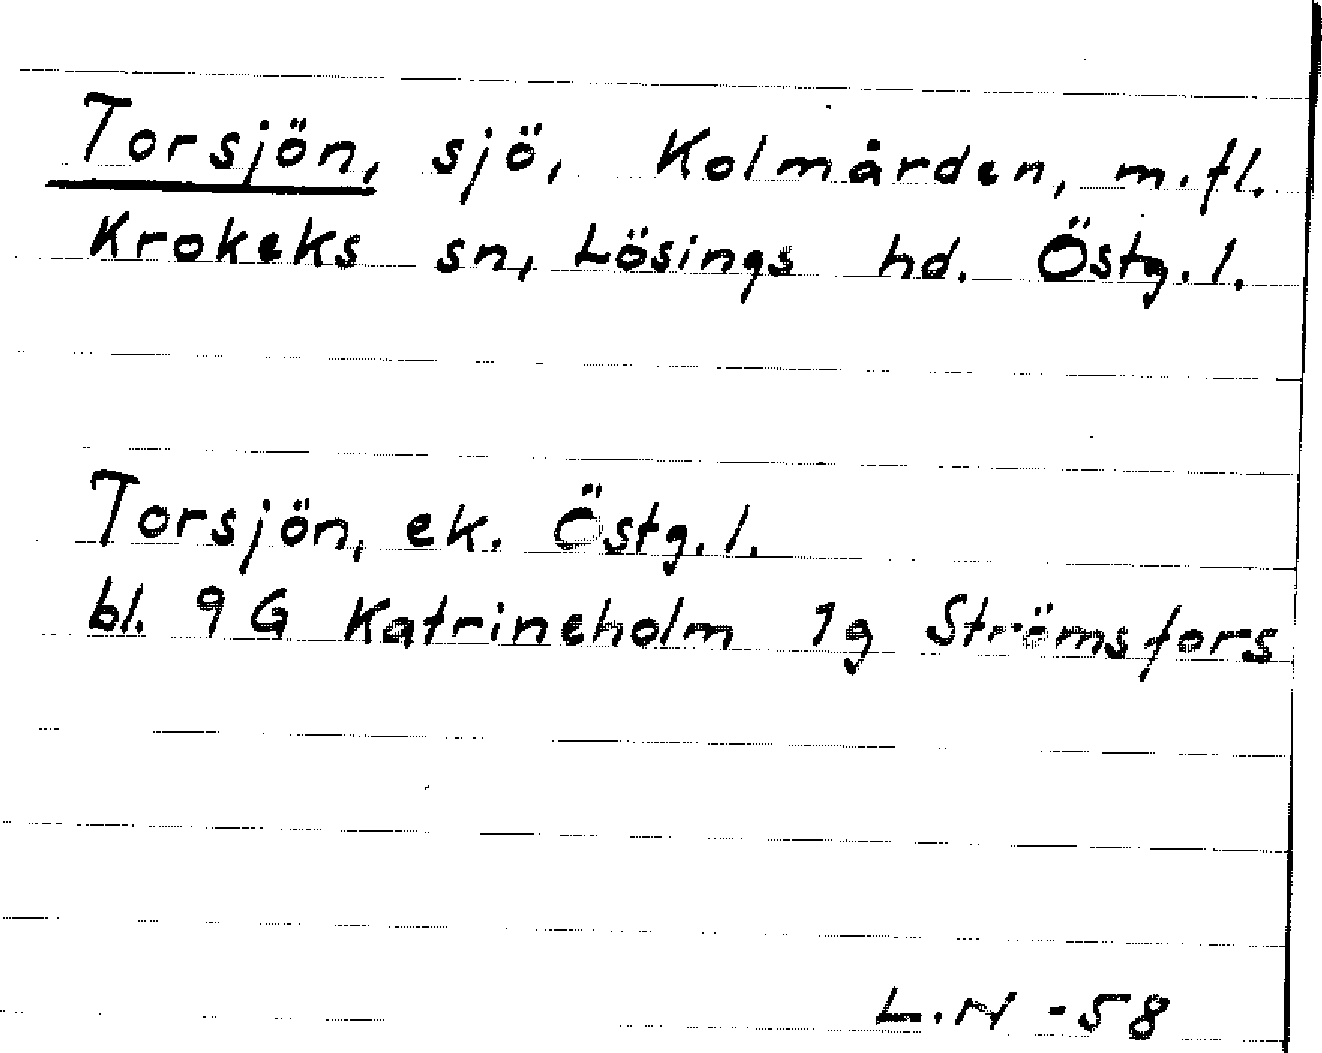 Torsjön, sjö, Kolmården, m.fl.
Krokeks sn, Lösings hd. Östg.l.
Torsjön, ek. Östg.l.
bl. 9 G Katrineholm 1g Strömsfors
L.N -58